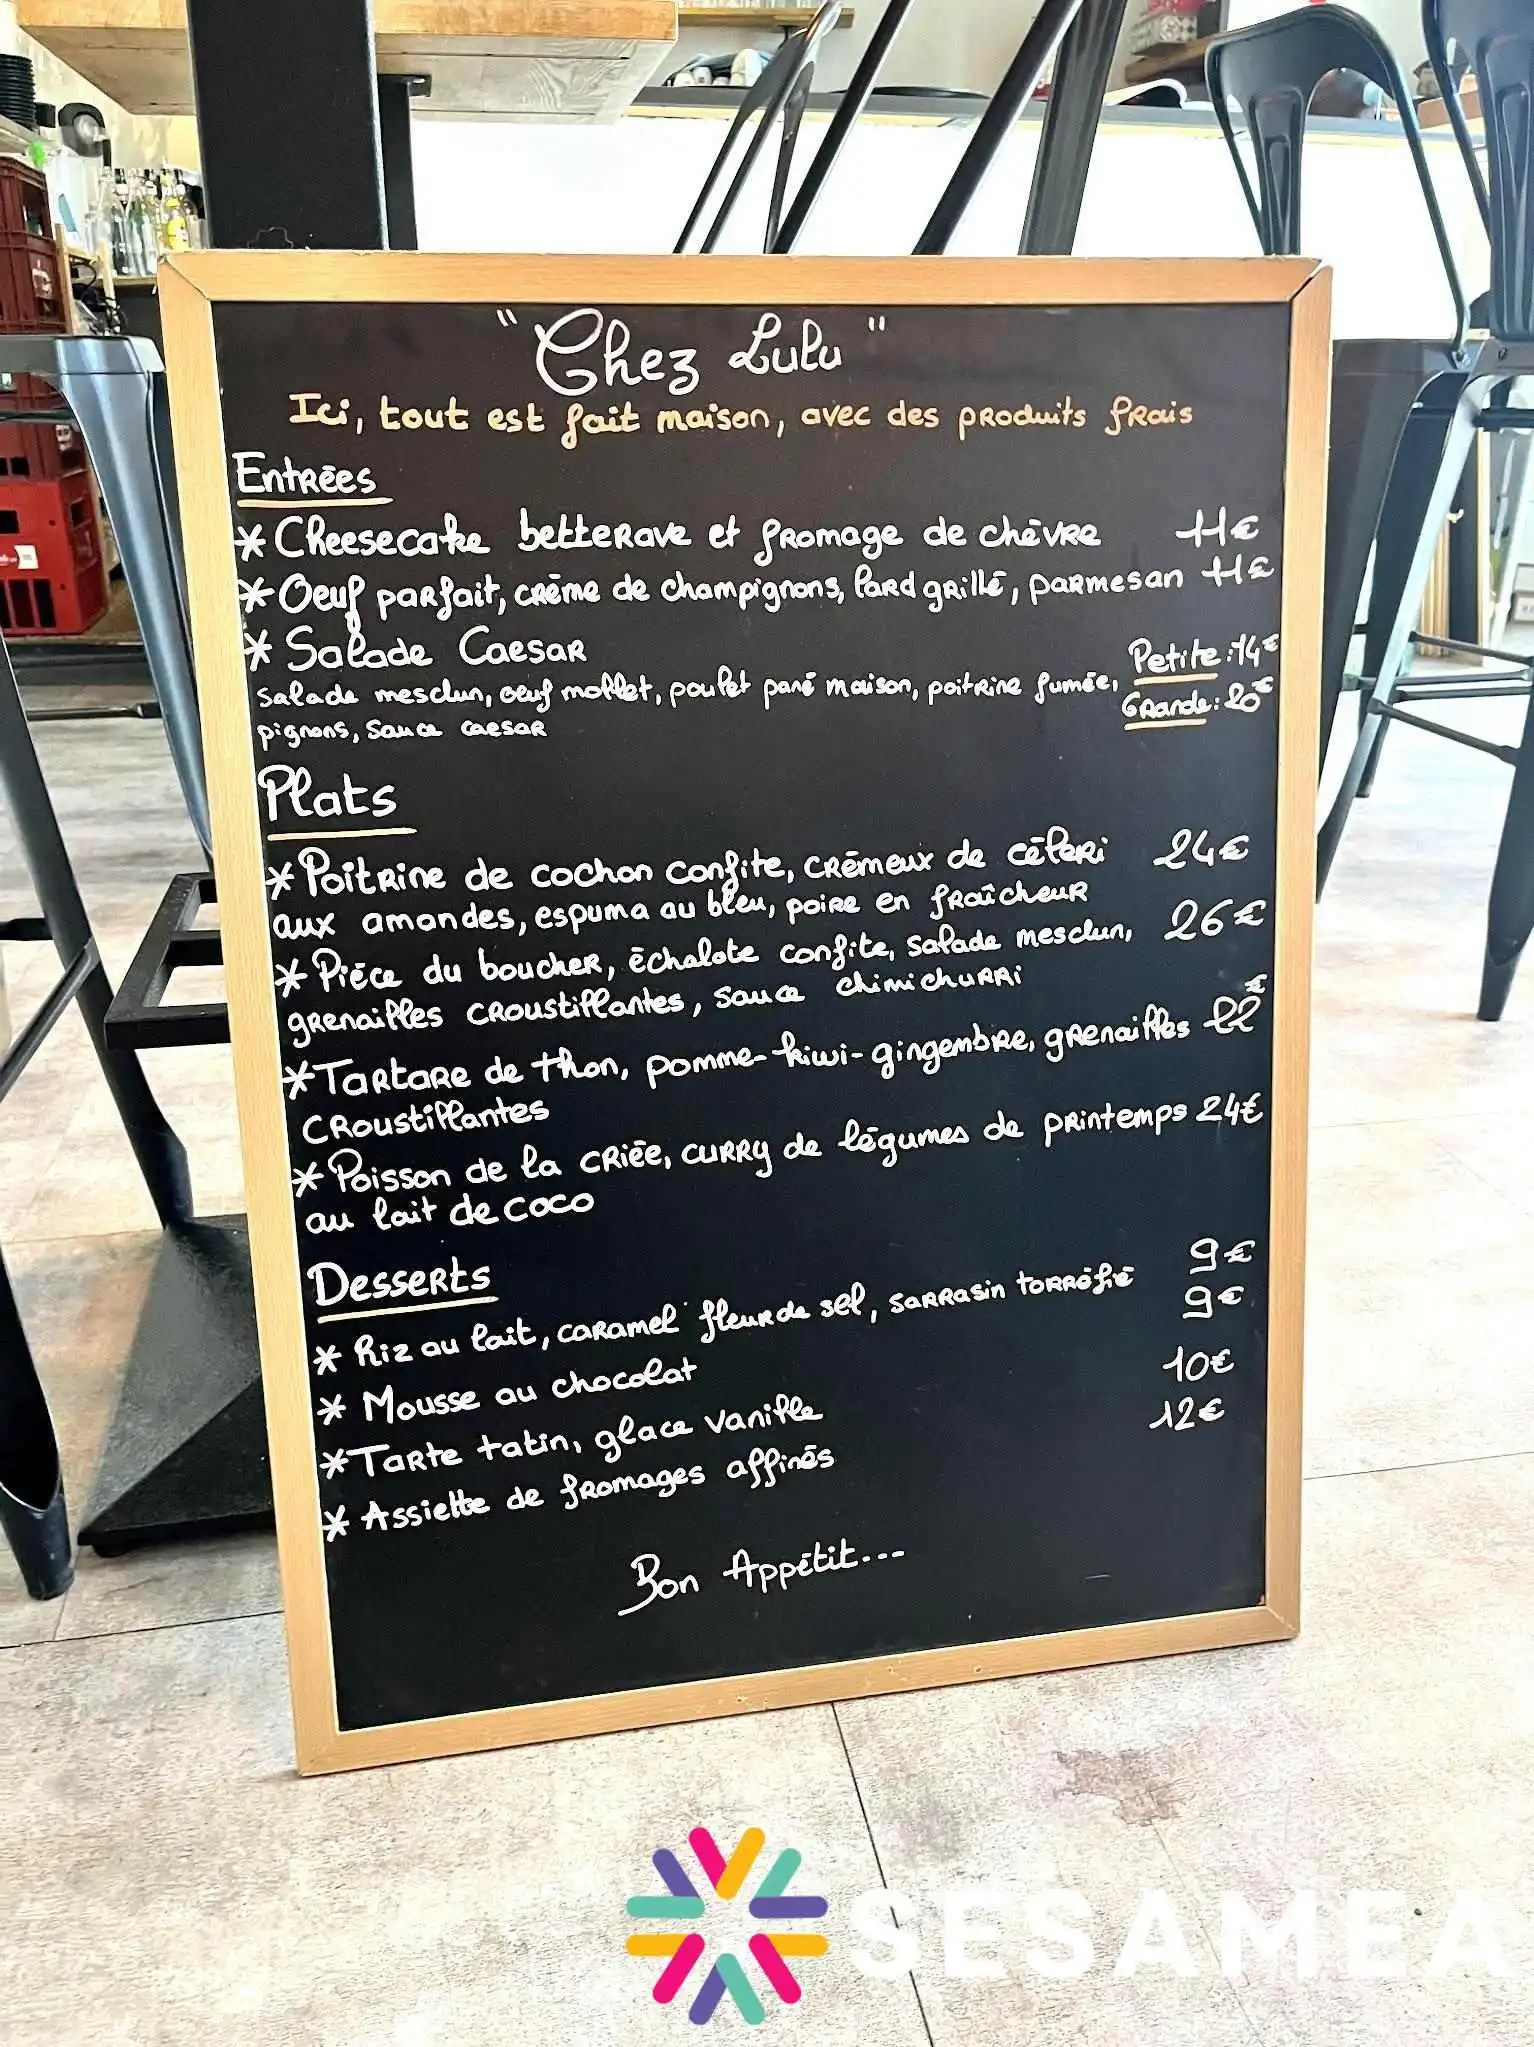 "Chez Lulu"
Ici, tout est fait maison, avec des produits frais
Entrées
* Cheesecake betterave et fromage de chèvre 11€
* Oeuf parfait, crème de champignons, lard grillé, parmesan 11€
* Salade Caesar Petite : 14€
salade mesclun, oeuf mollet, poulet pané maison, poitrine fumée, Grande : 20€
pignons, sauce caesar
Plats
* Poitrine de cochon confite, crémeux de céleri 24€
aux amandes, espuma au bleu, poire en fraîcheur
* Pièce du boucher, échalote confite, salade mesclun, 26€
grenailles croustillantes, sauce chimichurri
* Tartare de thon, pomme-kiwi-gingembre, grenailles 22€
croustillantes
* Poisson de la criée, curry de légumes de printemps 24€
au lait de coco
Desserts
* Riz au lait, caramel fleur de sel, sarrasin torréfié 9€
* Mousse au chocolat 9€
* Tarte tatin, glace vanille 10€
* Assiette de fromages affinés 12€
Bon Appétit...
SESAMEA